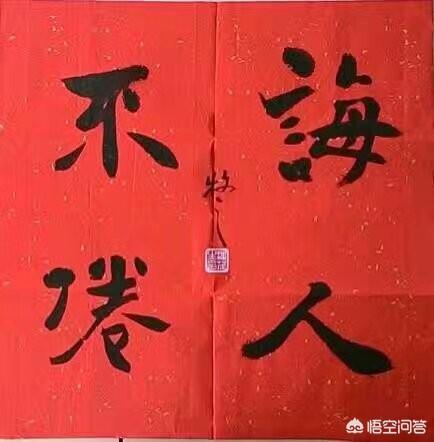 誨人
不倦
牧之
悟空问答